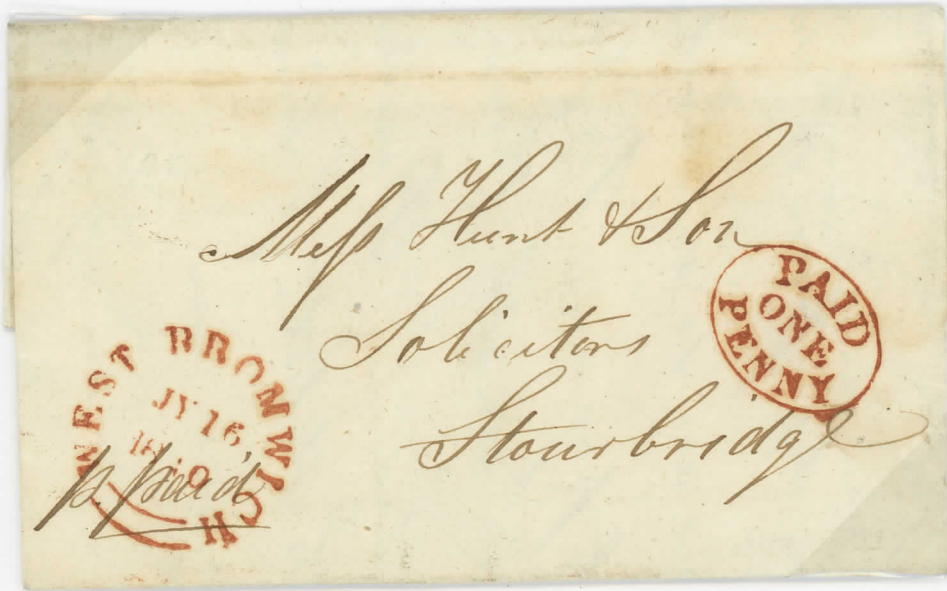 Mess Hunt & Son
Solicitors
Stourbridge
PAID
ONE
PENNY
WEST BROMWICH
JY 16
1840
p. paid